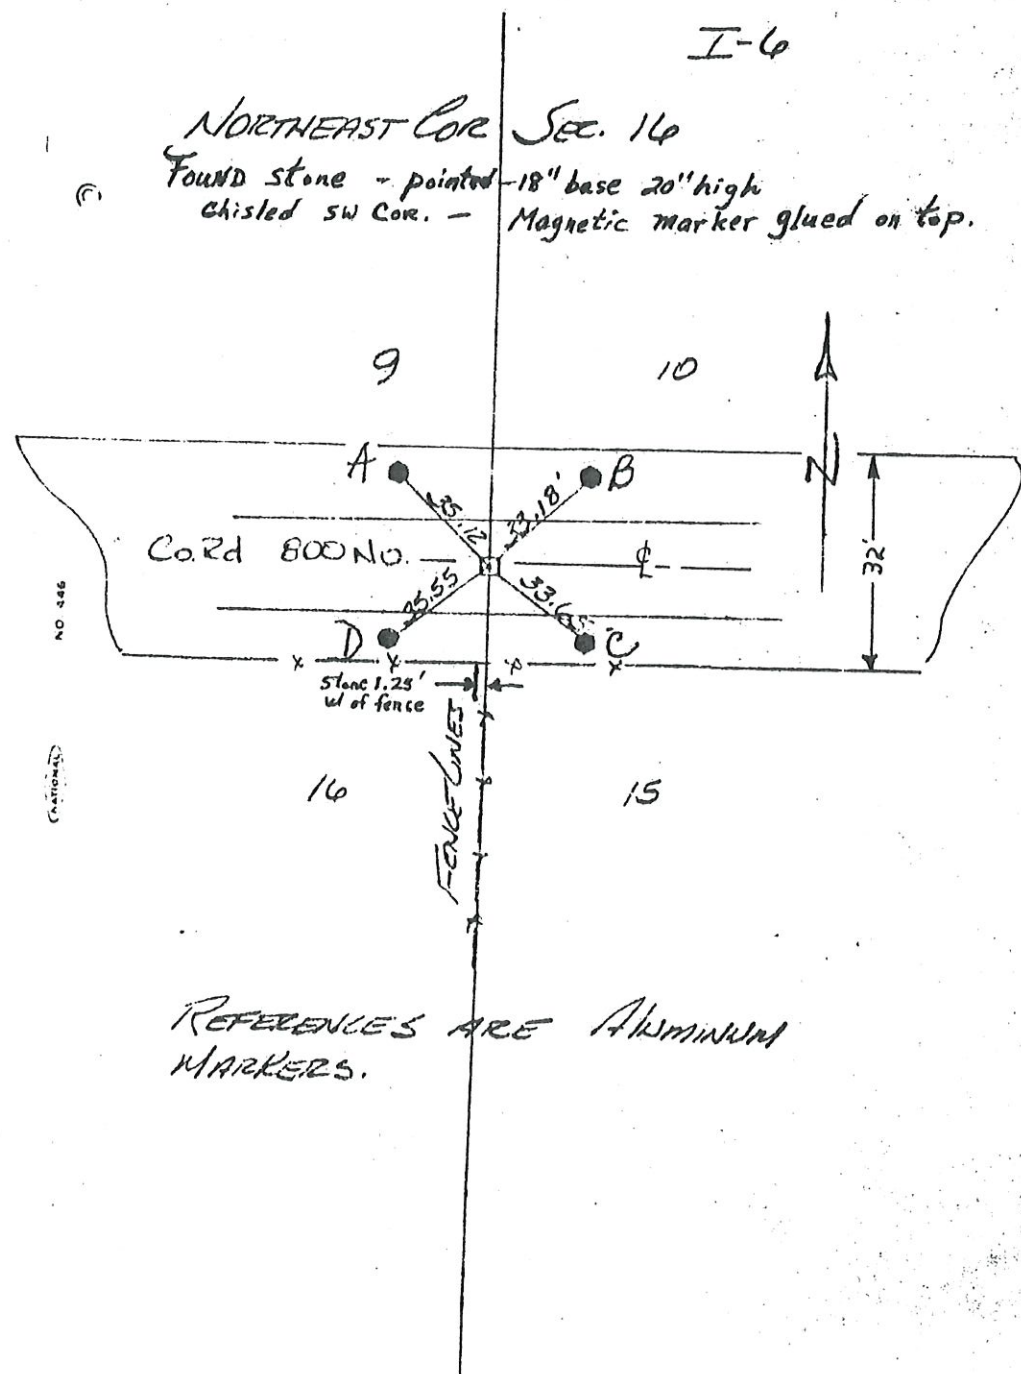 I-6
NORTHEAST COR SEC. 16
FOUND stone - pointed - 18" base 20" high
Chisled SW COR. - Magnetic marker glued on top.
9
10
A
B
35.12
33.18'
N
Co.Rd 800 No.
℄
32'
35.55
D
C
Stone 1.25'
W of fence
FENCE LINES
16
15
REFERENCES ARE ALUMINUM
MARKERS.
NO 446
NATIONAL